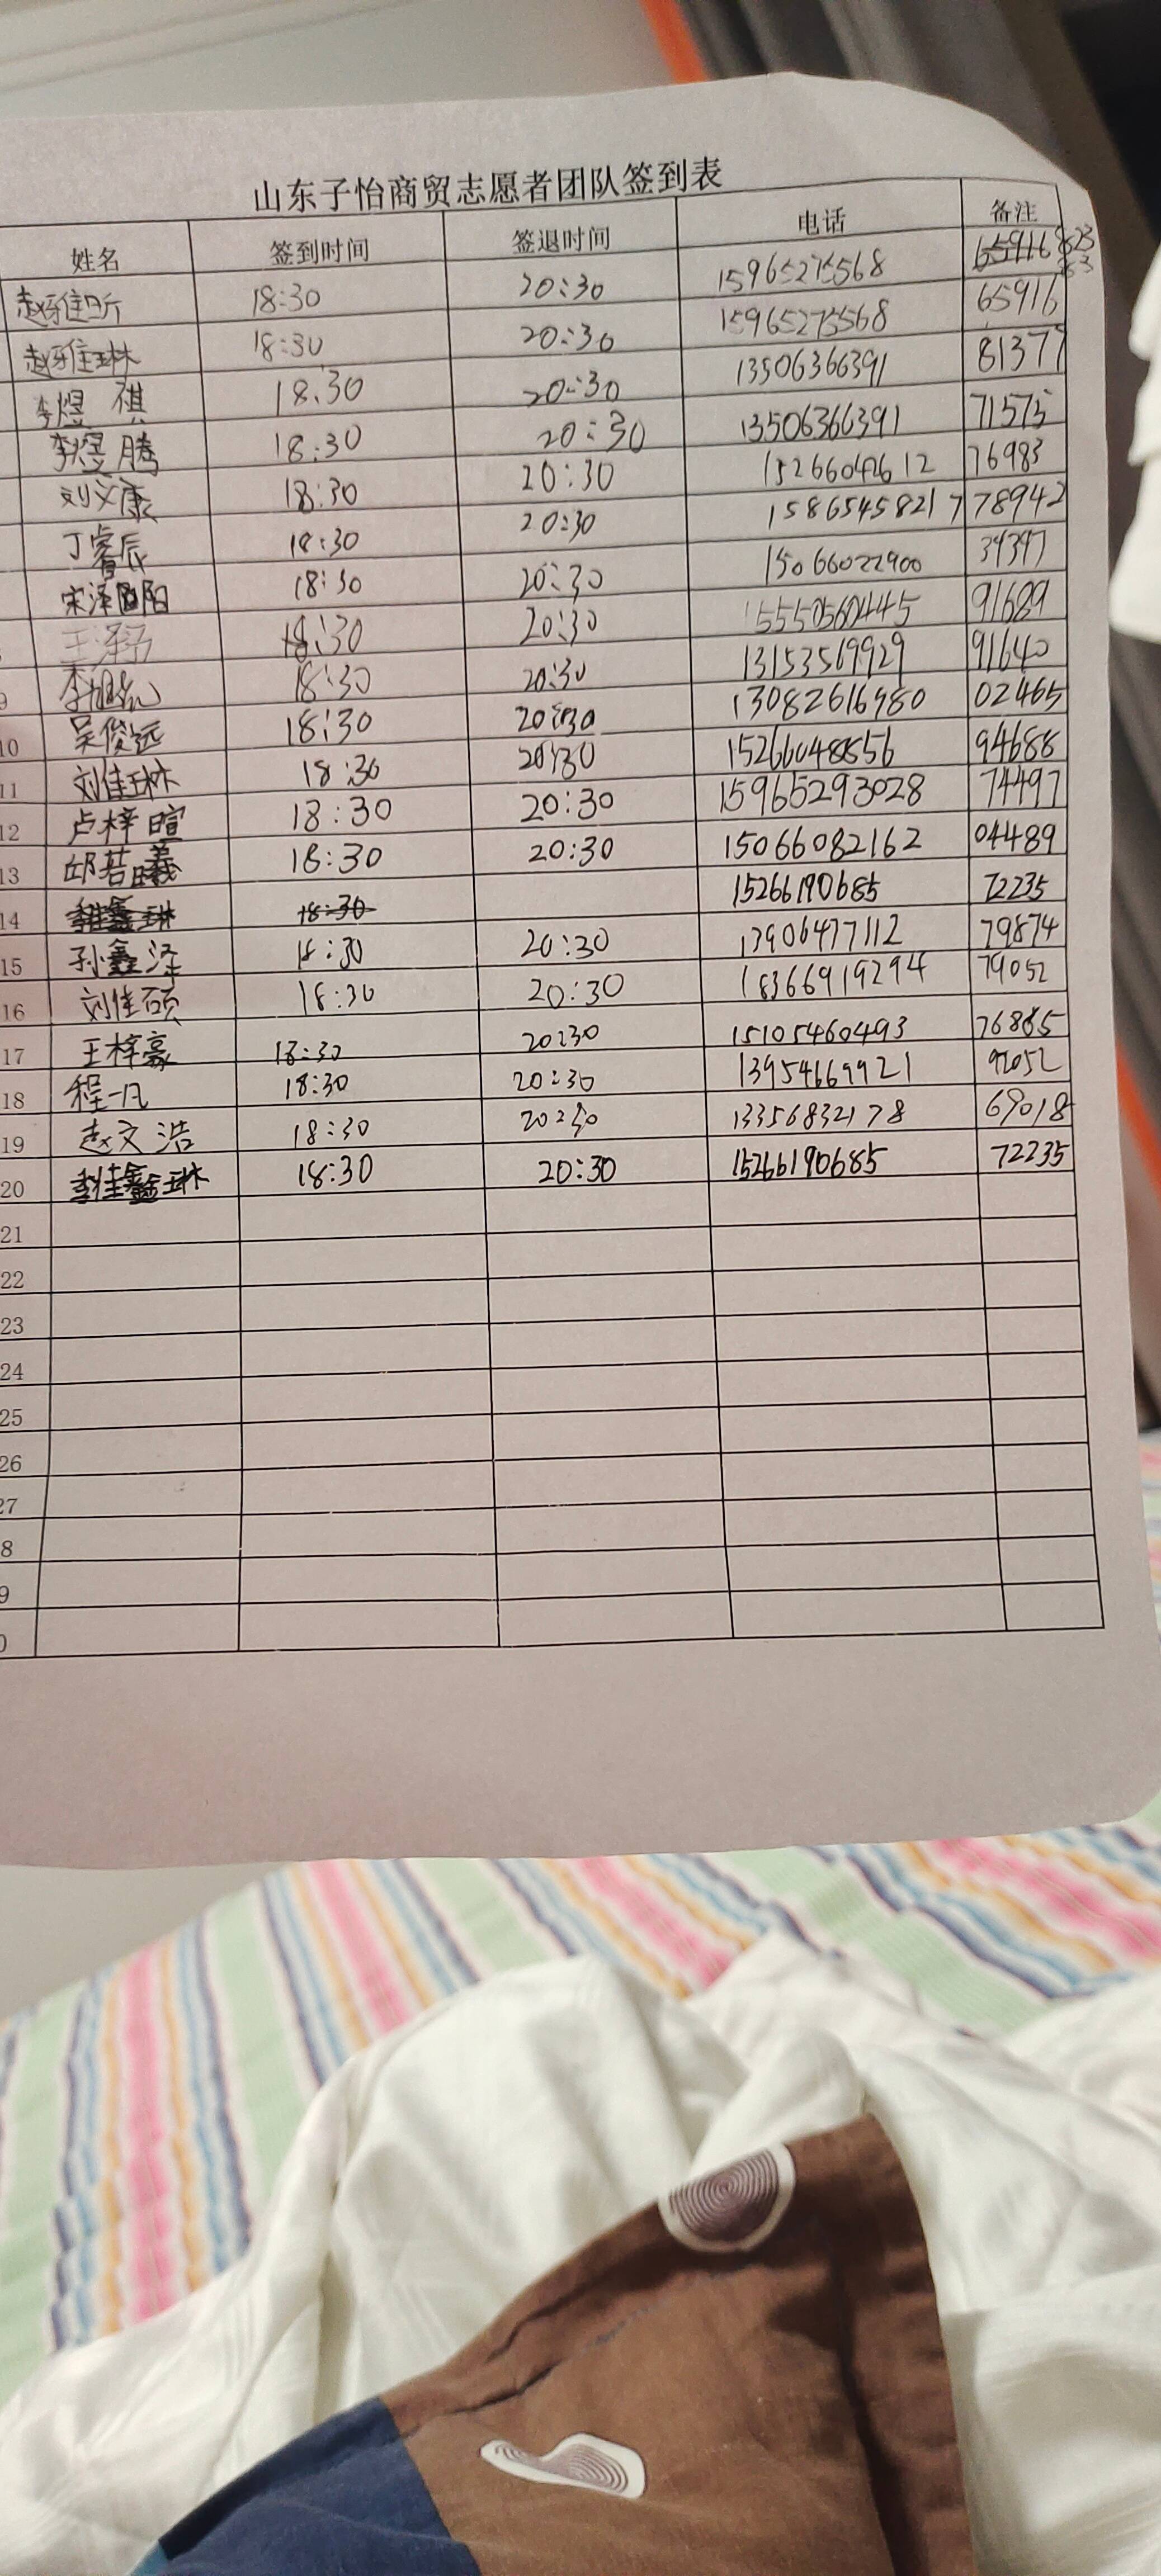 山东子怡商贸志愿者团队签到表
姓名 签到时间 签退时间 电话 备注
赵雅昕 18:30 20:30 15965275568
赵雅琳 18:30 20:30 15965275568 65916
李煜祺 18:30 20:30 13506366391 81377
李煜腾 18:30 20:30 13506366391 71575
刘义康 18:30 20:30 15266042612 76983
丁睿辰 18:30 20:30 15865458217 78942
宋泽阳 18:30 20:30 15066022900 39397
王泽 18:30 20:30 15550560445 91689
9 李旭 18:30 20:30 13153569929 91640
10 吴俊远 18:30 20:30 13082616980 02465
11 刘佳琳 18:30 20:30 15266048856 94688
12 卢梓暄 18:30 20:30 15965293028 74497
13 邱若曦 18:30 20:30 15066082162 04489
14 18:30 15266190685 72235
15 孙鑫泽 18:30 20:30 13906477112 79874
16 刘佳硕 18:30 20:30 18366919294 79052
17 王梓豪 18:30 20:30 15105460493 76865
18 程一凡 18:30 20:30 13954669921 92052
19 赵文浩 18:30 20:30 13356832178 69018
20 18:30 20:30 15266190685 72235
21
22
23
24
25
26
27
8
9
0